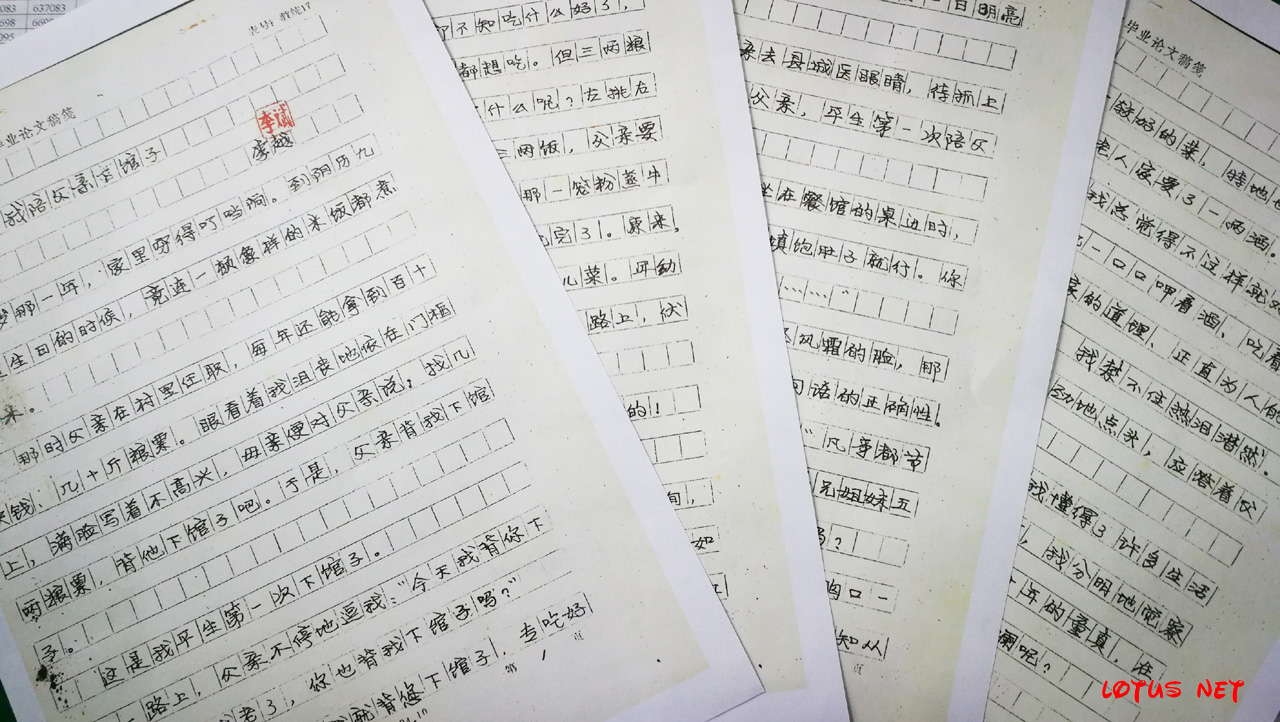 083 637083
698 6698
095 6
表号：教练17
毕业论文稿笺
我陪父亲下馆子
李斌
李越
岁那一年，家里穷得叮当响。到阴历九
生日的时候，竟连一顿象样的米饭都煮
来。
那时父亲在村里任职，每年还能拿到百十
块钱：几十斤粮票。眼看着我沮丧地依在门框
上，满脸写着不高兴，母亲便对父亲说：找几
两粮票，背他下馆子吧。于是，父亲背我下馆
子。
这是我平生第一次下馆子。
一路上，父亲不停地逗我："今天我背你下
老了，你也背我下馆子吗？"
就背您下馆子，专吃好
都不知吃什么好了，
都想吃。但三两粮
什么呢？左挑右
三两饭，父亲要
那一笼粉蒸牛
完了。原来，
儿菜。年幼
路上，伏
的！
旬，
如
一日明亮
亲去县城医眼睛，待抓上
父亲，平生第一次陪父
坐在餐馆的桌边时，
填饱肚子就行。你
……"
风霜的脸，那
句语的正确性。
"凡事都节
兄姐妹五
吗？
胸口一
知从
毕业论文稿笺
较好的菜，特地也
老人家要了一两酒。
我总觉得不这样就
一口口呷着酒、吃着
家的道理、正直为人的
我禁不住热泪潸然。
劲地点头，应答着父
我懂得了许多生活
，我分明地觉察
年的童真，在
阑呢？
LOTUS NET